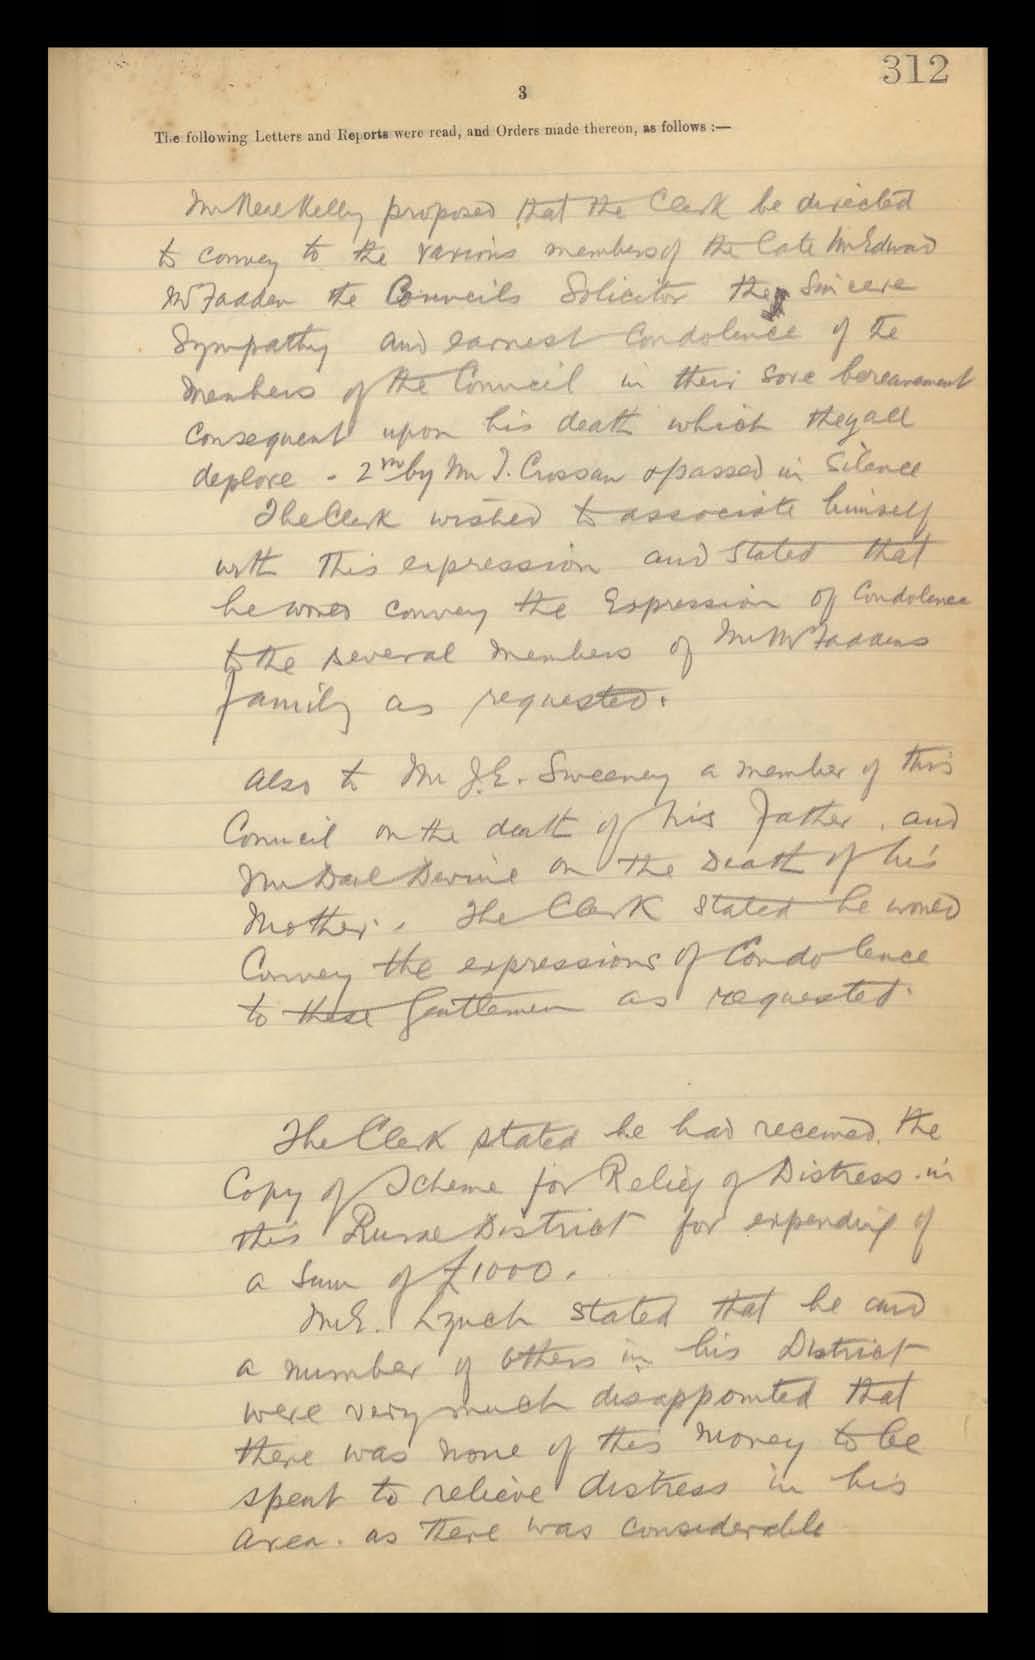 312
3
The following Letters and Reports were read, and Orders made thereon, as follows :—
Mr Kelly proposed that the Clerk be directed
to convey to the various members of the late Mr Edward
McFadden the Councils Solicitor the sincere
Sympathy and earnest Condolence of the
Members of the Council in their sore bereavement
consequent upon his death which they all
deplore - 2nd by Mr J. Crossan & passed in Silence
The Clerk wished to associate himself
with this expression and stated that
he would convey the Expression of Condolence
to the several Members of Mr McFaddens
family as requested.
Also to Mr J.E. Sweeney a member of this
Council on the death of his Father. and
Mr Devine on the Death of his
Mother. The Clerk stated he would
Convey the expressions of Condolence
to these Gentlemen as requested.
The Clerk stated he had received the
Copy of Scheme for Relief of Distress in
this Rural District for expending of
a Sum of £1000.
Mr E. Lynch stated that he and
a number of others in his District
were very much disappointed that
there was none of this money to be
spent to relieve distress in his
area. as there was considerable